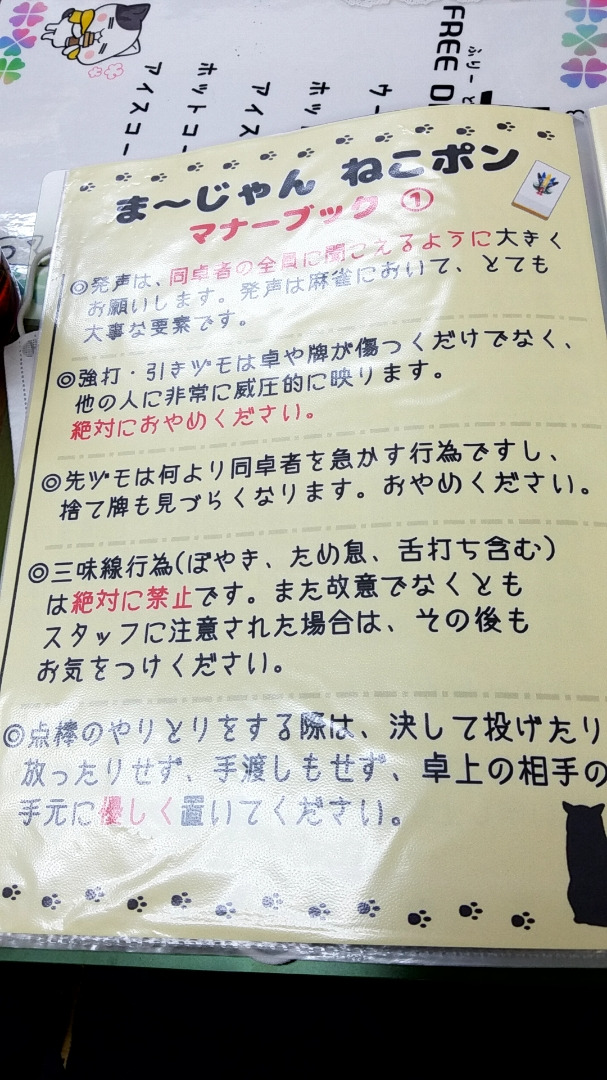 ふりーど
FREE D
ウー
ホッ
アイス
ホットコー
アイスコー
ま～じゃん ねこポン
マナーブック ①
◎発声は、同卓者の全員に聞こえるように大きく
お願いします。発声は麻雀において、とても
大事な要素です。
◎強打・引きヅモは卓や牌が傷つくだけでなく、
他の人に非常に威圧的に映ります。
絶対におやめください。
◎先ヅモは何より同卓者を急かす行為ですし、
捨て牌も見づらくなります。おやめください。
◎三味線行為(ぼやき、ため息、舌打ち含む)
は絶対に禁止です。また故意でなくとも
スタッフに注意された場合は、その後も
お気をつけください。
◎点棒のやりとりをする際は、決して投げたり
放ったりせず、手渡しもせず、卓上の相手の
手元に優しく置いてください。